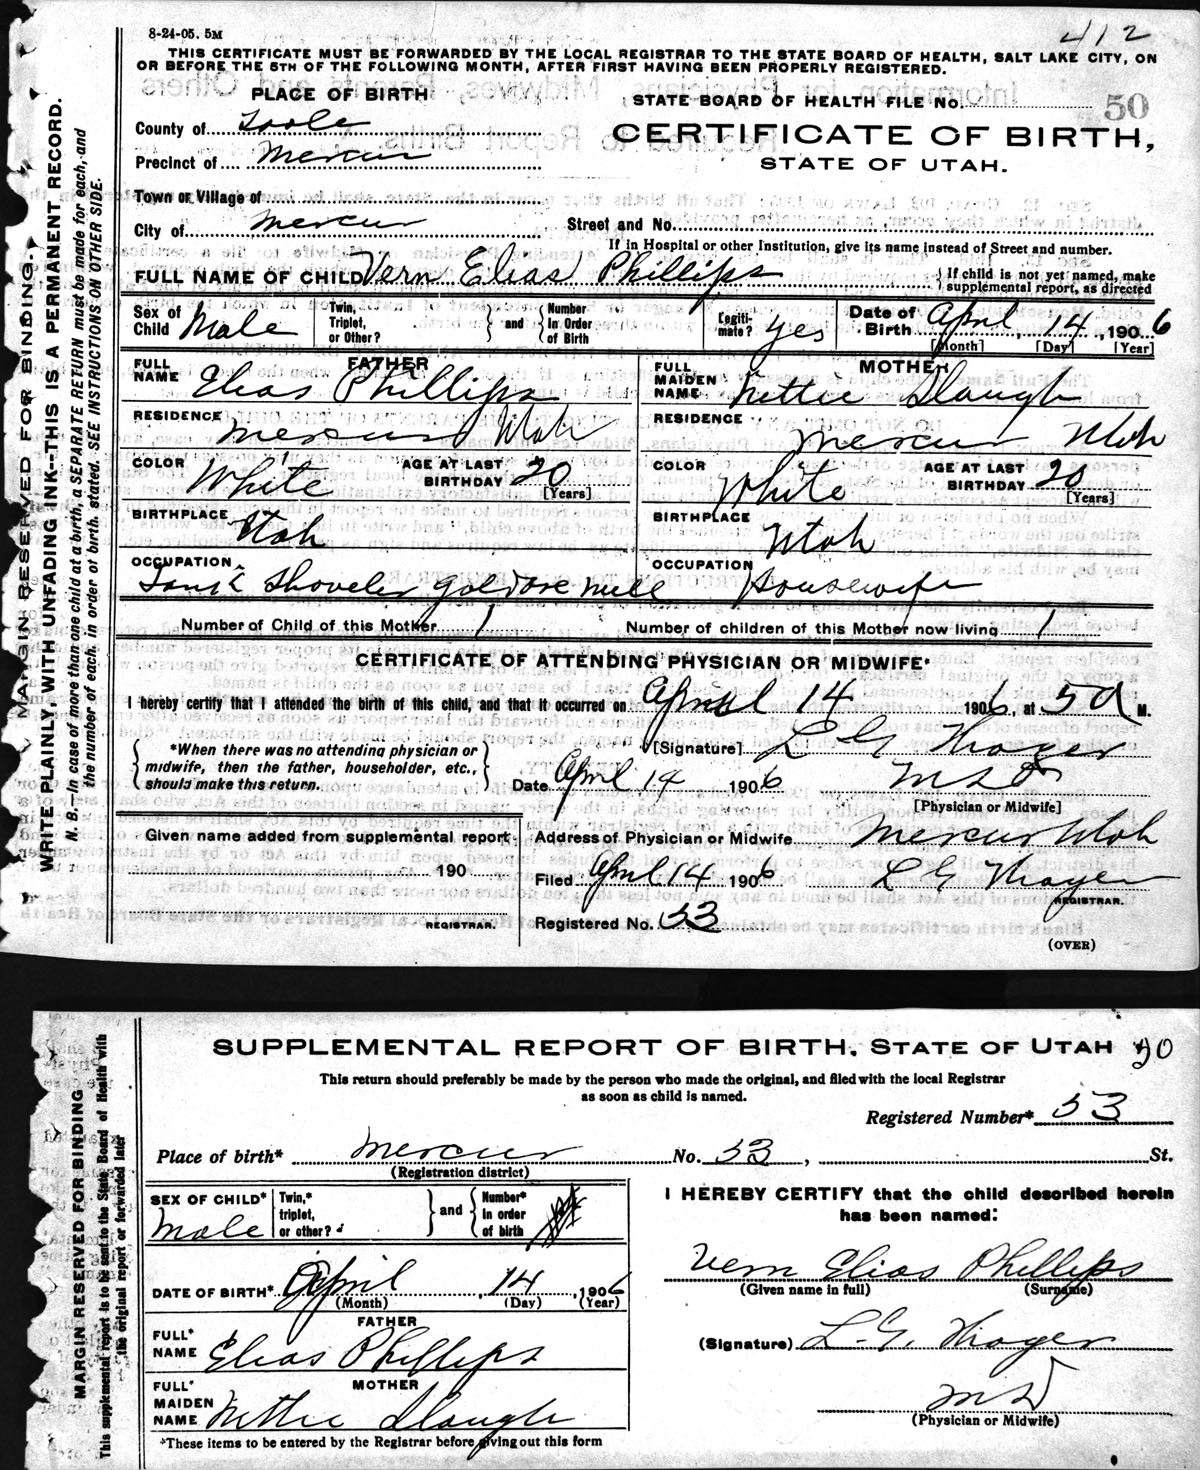 8-24-05. 5M
412
THIS CERTIFICATE MUST BE FORWARDED BY THE LOCAL REGISTRAR TO THE STATE BOARD OF HEALTH, SALT LAKE CITY, ON
OR BEFORE THE 5TH OF THE FOLLOWING MONTH, AFTER FIRST HAVING BEEN PROPERLY REGISTERED.
PLACE OF BIRTH
STATE BOARD OF HEALTH FILE No. 50
County of Tooele
CERTIFICATE OF BIRTH,
Precinct of Mercur
STATE OF UTAH.
Town or Village of
City of Mercur Street and No.
If in Hospital or other Institution, give its name instead of Street and number.
FULL NAME OF CHILD Vern Elias Phillips { If child is not yet named, make
supplemental report, as directed
Sex of Child Male Twin, Triplet, or Other? } and { Number In Order of Birth Legiti-mate? yes Date of Birth April 14 1906
[Month] [Day] [Year]
FATHER MOTHER
FULL NAME Elias Phillips FULL MAIDEN NAME Nettie Slaugh
RESIDENCE Mercur Utah RESIDENCE Mercur Utah
COLOR White AGE AT LAST BIRTHDAY 20 [Years] COLOR White AGE AT LAST BIRTHDAY 20 [Years]
BIRTHPLACE Utah BIRTHPLACE Utah
OCCUPATION Tank Shoveler Gold Ore Mill OCCUPATION Housewife
Number of Child of this Mother 1 Number of children of this Mother now living 1
CERTIFICATE OF ATTENDING PHYSICIAN OR MIDWIFE*
I hereby certify that I attended the birth of this child, and that it occurred on April 14 1906, at 5 a M.
{ *When there was no attending physician or
midwife, then the father, householder, etc.,
should make this return. }
[Signature] L G Thayer
Date April 14 1906 M D
[Physician or Midwife]
Given name added from supplemental report
190
REGISTRAR.
Address of Physician or Midwife Mercur Utah
Filed April 14 1906 L G Thayer
REGISTRAR.
Registered No. 53
(OVER)
MARGIN RESERVED FOR BINDING.
WRITE PLAINLY, WITH UNFADING INK--THIS IS A PERMANENT RECORD.
N. B. In case of more than one child at a birth, a SEPARATE RETURN must be made for each, and
the number of each, in order of birth, stated. SEE INSTRUCTIONS ON OTHER SIDE.
SUPPLEMENTAL REPORT OF BIRTH. STATE OF UTAH 50
This return should preferably be made by the person who made the original, and filed with the local Registrar
as soon as child is named.
Registered Number* 53
Place of birth* Mercur No. 53, St.
(Registration district)
SEX OF CHILD* Male Twin,* triplet, or other? } and { Number* In order of birth
DATE OF BIRTH* April, 14, 1906
(Month) (Day) (Year)
FATHER
FULL* NAME Elias Phillips
MOTHER
FULL* MAIDEN NAME Nettie Slaugh
*These items to be entered by the Registrar before giving out this form
I HEREBY CERTIFY that the child described herein
has been named:
Vern Elias Phillips
(Given name in full) (Surname)
(Signature) L. G. Thayer
M D
(Physician or Midwife)
MARGIN RESERVED FOR BINDING
This supplemental report is to be sent to the State Board of Health with
the original report or forwarded later